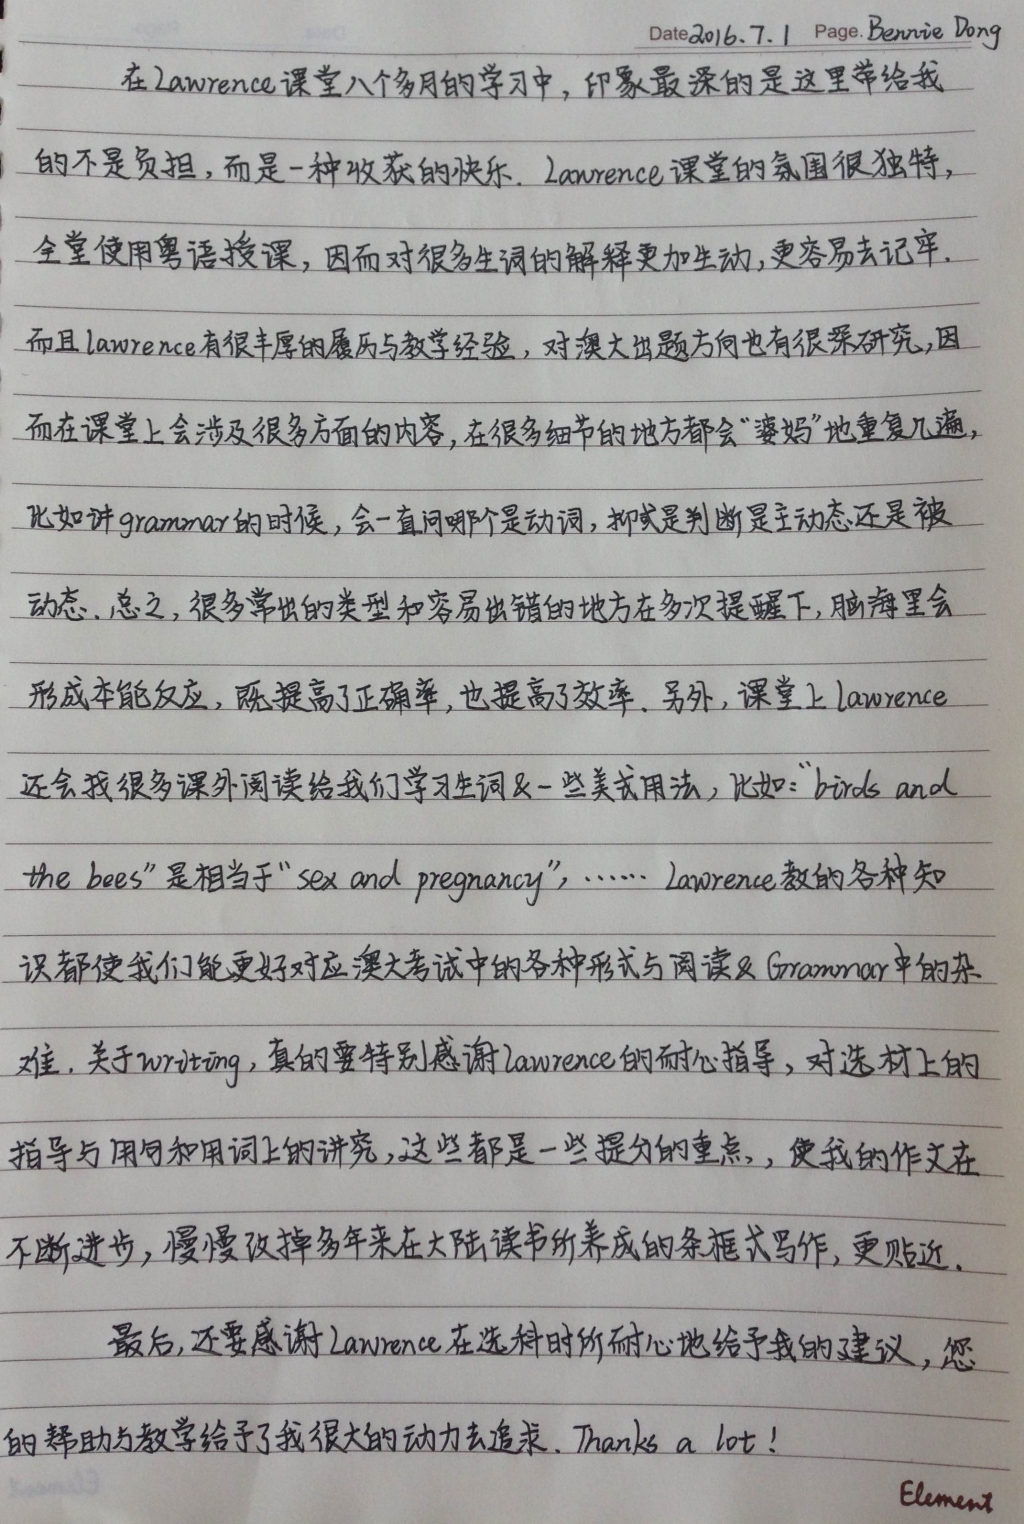 Date 2016.7.1 Page. Bennie Dong
在Lawrence课堂八个多月的学习中，印象最深的是这里带给我
的不是负担，而是一种收获的快乐．Lawrence课堂的氛围很独特，
全堂使用粤语授课，因而对很多生词的解释更加生动，更容易去记牢．
而且lawrence有很丰厚的履历与教学经验，对澳大出题方向也有很深研究，因
而在课堂上会涉及很多方面的内容，在很多细节的地方都会“婆妈”地重复几遍，
比如讲grammar的时候，会一直问哪个是动词，抑或是判断是主动态还是被
动态．总之，很多常出的类型和容易出错的地方在多次提醒下，脑海里会
形成本能反应，既提高了正确率，也提高了效率．另外，课堂上lawrence
还会找很多课外阅读给我们学习生词&一些美式用法，比如：“birds and
the bees”是相当于“sex and pregnancy”，…… Lawrence教的各种知
识都使我们能更好对应澳大考试中的各种形式与阅读& Grammar中的杂
难．关于writing，真的要特别感谢lawrence的耐心指导，对选材上的
指导与用句和用词上的讲究，这些都是一些提分的重点，，使我的作文在
不断进步，慢慢改掉多年来在大陆读书所养成的条框式写作，更贴近．
最后，还要感谢Lawrence在选科时所耐心地给予我的建议，您
的帮助与教学给予了我很大的动力去追求．Thanks a lot！
Element